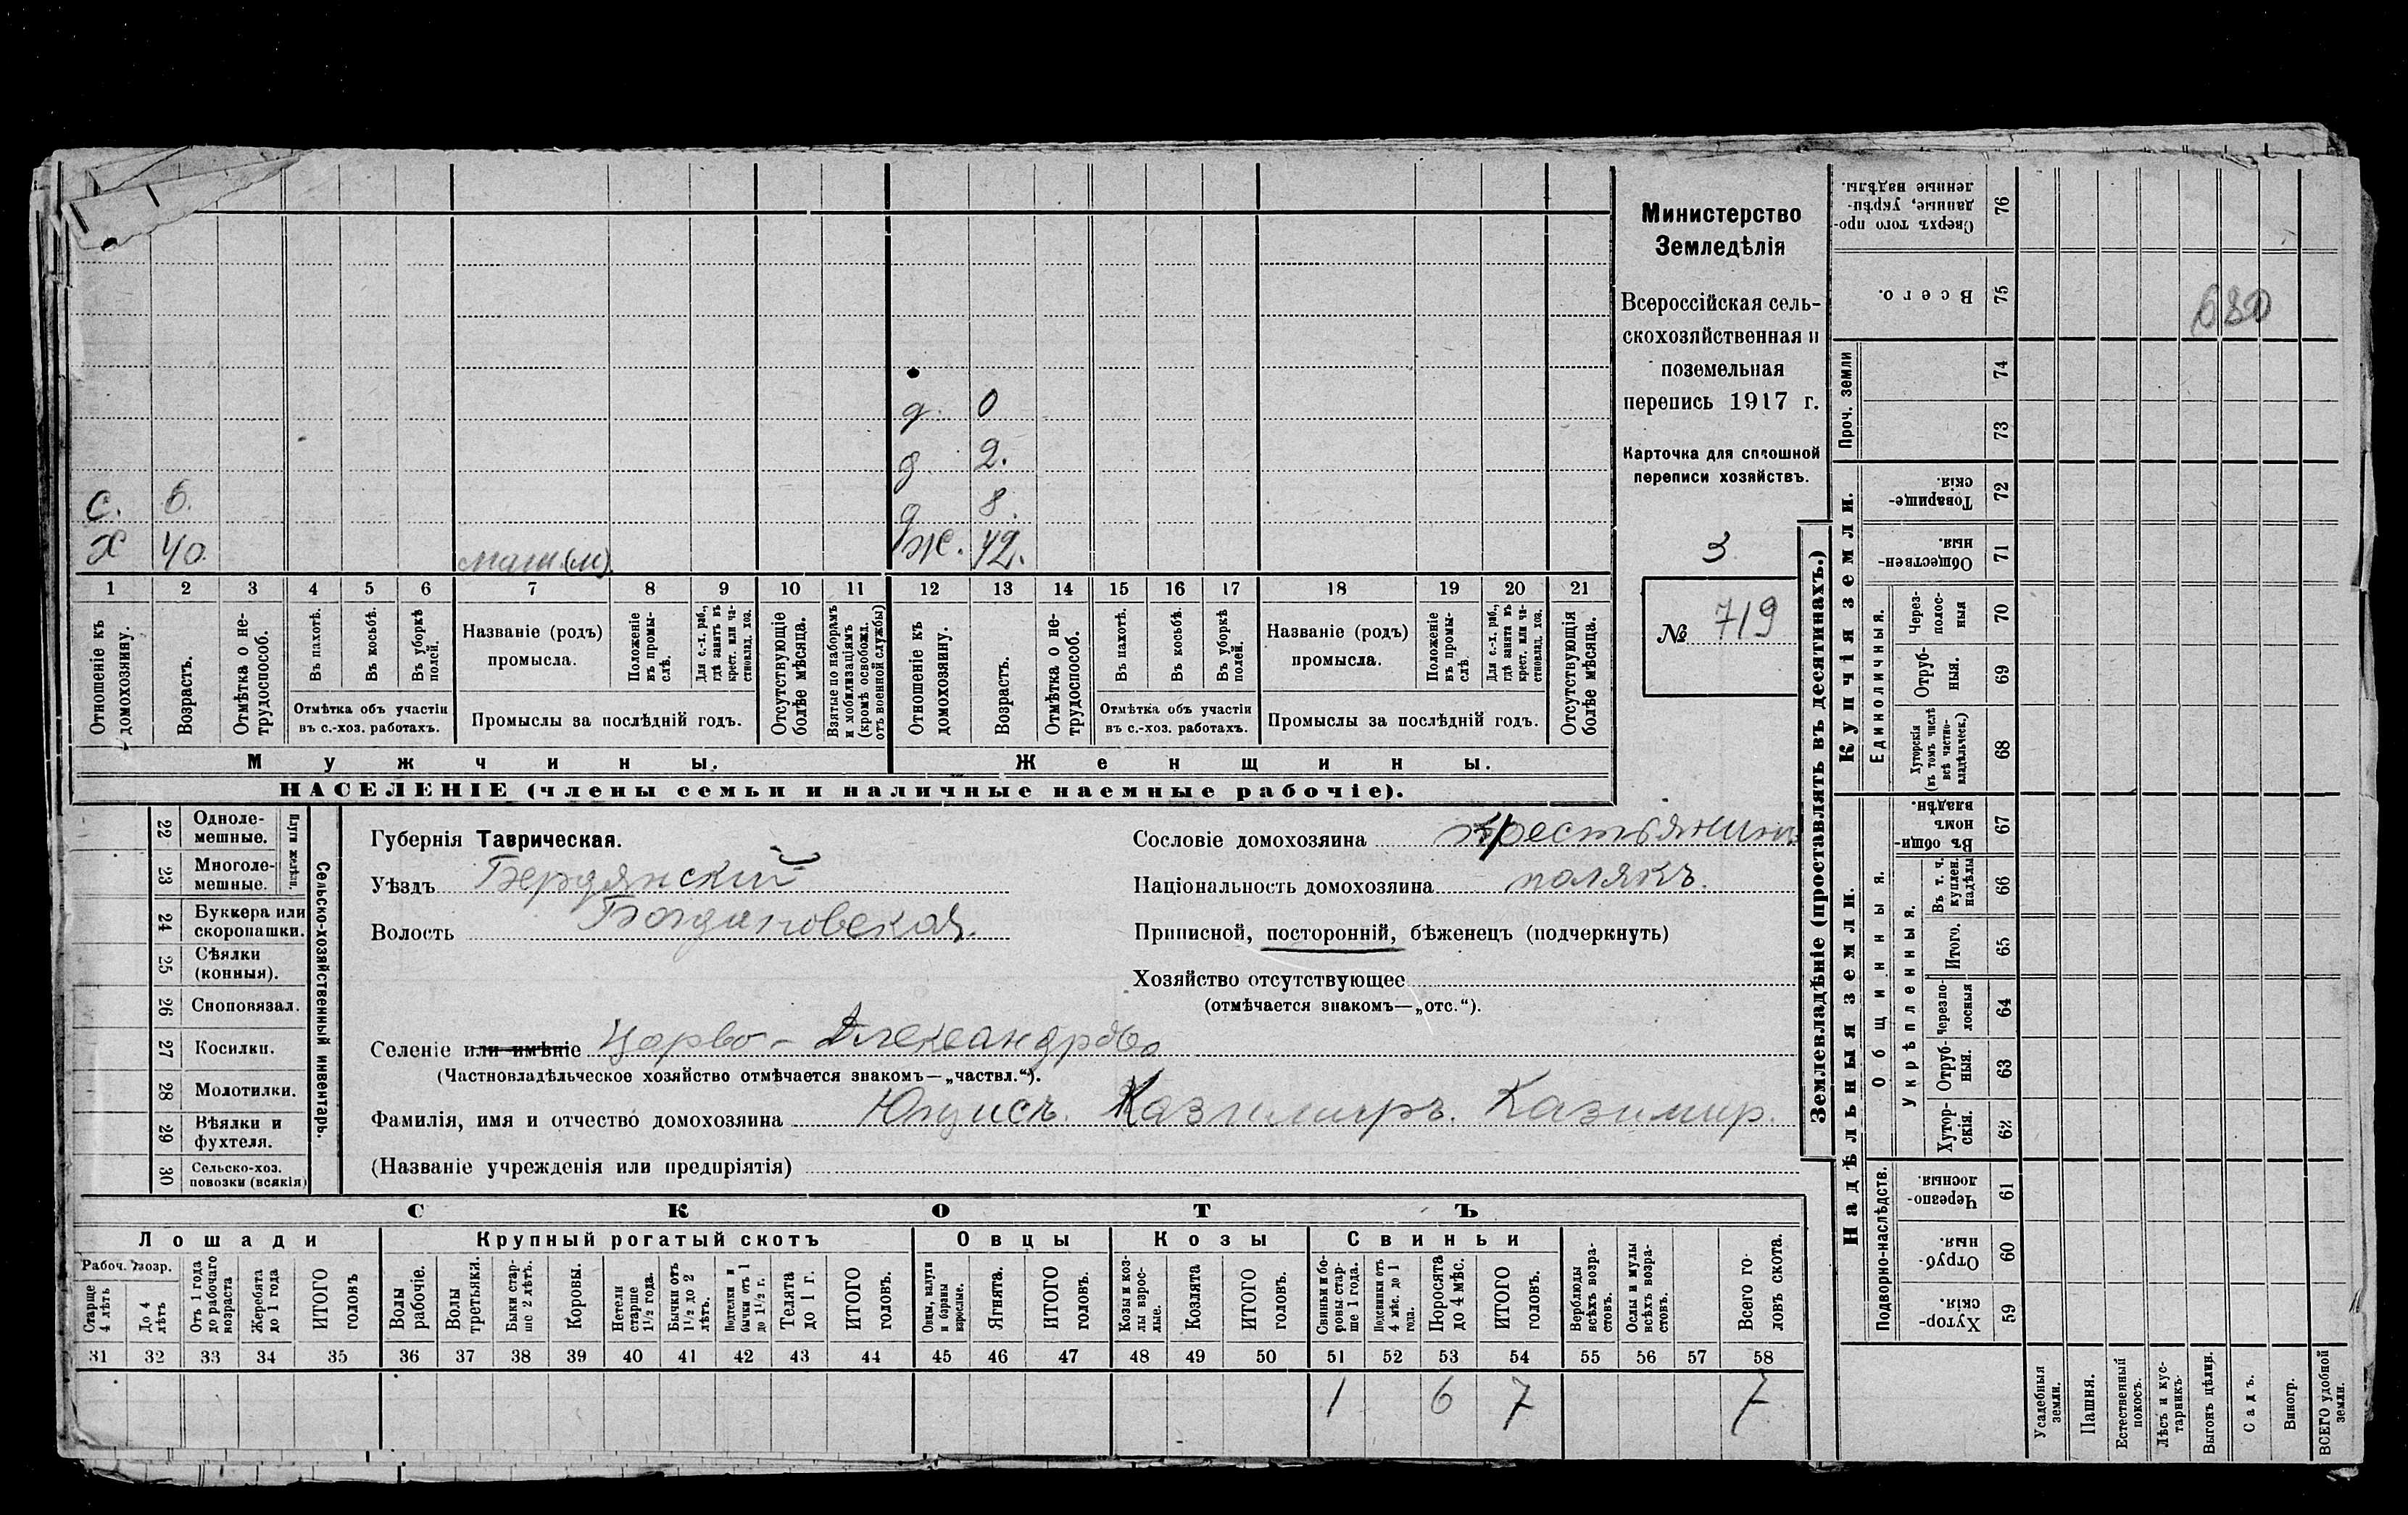 Министерство
Земледѣлія
Всероссійская сель-
скохозяйственная и
поземельная
перепись 1917 г.
Карточка для сплошной
переписи хозяйствъ.
3
№ 719
д. 0
д 2.
С. 6. д 8.
Х 40. маш.(м). ж. 42.
1 2 3 4 5 6 7 8 9 10 11 12 13 14 15 16 17 18 19 20 21
Отношеніе къ домохозяину.
Возрастъ.
Отмѣтка о не-трудоспособ.
Въ пахотѣ.
Въ косьбѣ.
Въ уборкѣ полей.
Отмѣтка объ участіи
въ с.-хоз. работахъ.
Названіе (родъ)
промысла.
Положеніе въ промы-слѣ.
Для с.-х. раб., гдѣ занятъ въ крест. или ча-стновлад. хоз.
Промыслы за послѣдній годъ.
Отсутствующіе болѣе мѣсяца.
Взятые по наборамъ и мобилизаціямъ (кромѣ освобожд. отъ военной службы)
Отношеніе къ домохозяину.
Возрастъ.
Отмѣтка о не-трудоспособ.
Въ пахотѣ.
Въ косьбѣ.
Въ уборкѣ полей.
Отмѣтка объ участіи
въ с.-хоз. работахъ.
Названіе (родъ)
промысла.
Положеніе въ промы-слѣ.
Для с.-х. раб., гдѣ занята въ крест. или ча-стновлад. хоз.
Промыслы за послѣдній годъ.
Отсутствующія болѣе мѣсяца.
Мужчины. Женщины.
НАСЕЛЕНІЕ (члены семьи и наличные наемные рабочіе).
22 Одноле-мешные.
23 Многоле-мешные.
Плуги желѣзн.
24 Буккера или скоропашки.
25 Сѣялки (конныя).
26 Сноповязал.
27 Косилки.
28 Молотилки.
29 Вѣялки и фухтеля.
30 Сельско-хоз. повозки (всякія)
Сельско-хозяйственный инвентарь.
Губернія Таврическая.
Уѣздъ Бердянскій
Волость Богдановская.
Сословіе домохозяина крестьянинъ
Національность домохозяина полякъ.
Приписной, посторонній, бѣженецъ (подчеркнуть)
Хозяйство отсутствующее
(отмѣчается знакомъ—„отс.“).
Селеніе или имѣніе Царево - Александров
(Частновладѣльческое хозяйство отмѣчается знакомъ—„частвл.“).
Фамилія, имя и отчество домохозяина Казимиръ. Казимир.
(Названіе учрежденія или предпріятія)
СКОТЪ
Лошади Крупный рогатый скотъ Овцы Козы Свиньи
Рабоч. возр.
Старше 4 лѣтъ
До 4 лѣтъ
Отъ 1 года до рабочаго возраста
Жеребята до 1 года
ИТОГО головъ
Волы рабочіе.
Волы третьяки.
Быки стар-ше 2 лѣтъ.
Коровы.
Нетели старше 1½ года.
Бычки отъ 1½ до 2 лѣтъ.
Подтелки и бычки отъ 1 до 1½ г.
Телята до 1 г.
ИТОГО головъ.
Овцы, валухи и бораны взрослые.
Ягнята.
ИТОГО головъ.
Козы и коз-лы взрос-лые.
Козлята
ИТОГО головъ.
Свиньи и бо-ровы стар-ше 1 года.
Подсвинки отъ 4 мѣс. до 1 года.
Поросята до 4 мѣс.
ИТОГО головъ.
Верблюды всѣхъ возра-стовъ.
Ослы и мулы всѣхъ возра-стовъ.
Всего го-ловъ скота.
31 32 33 34 35 36 37 38 39 40 41 42 43 44 45 46 47 48 49 50 51 52 53 54 55 56 57 58
1 6 7 7
Землевладѣніе (проставлять въ десятинахъ.)
Купчія земли.
Надѣльныя земли.
Сверхъ того про-данные, укрѣп-ленные надѣлы. 76
Всего. 75
Проч. земли
74
73
Товарище-скія. 72
Обществен-ныя. 71
Единоличныя.
Через-полос-ныя 70
Отруб-ныя. 69
Хуторскія (въ томъ числѣ всѣ частно-владѣльческ.) 68
Общинныя.
Въ общин-номъ владѣн. 67
Укрѣпленныя.
Въ т. ч. куплен. надѣлы 66
Итого. 65
Черезпо-лосныя 64
Отруб-ныя. 63
Хутор-скія. 62
Подворно-наслѣдств.
Черезпо-лосныя. 61
Отруб-ныя. 60
Хутор-скія. 59
Усадебныя земли.
Пашня.
Естественный покосъ.
Лѣсъ и кус-тарникъ.
Выгонъ цѣлин.
Садъ.
Виногр.
ВСЕГО удобной земли.